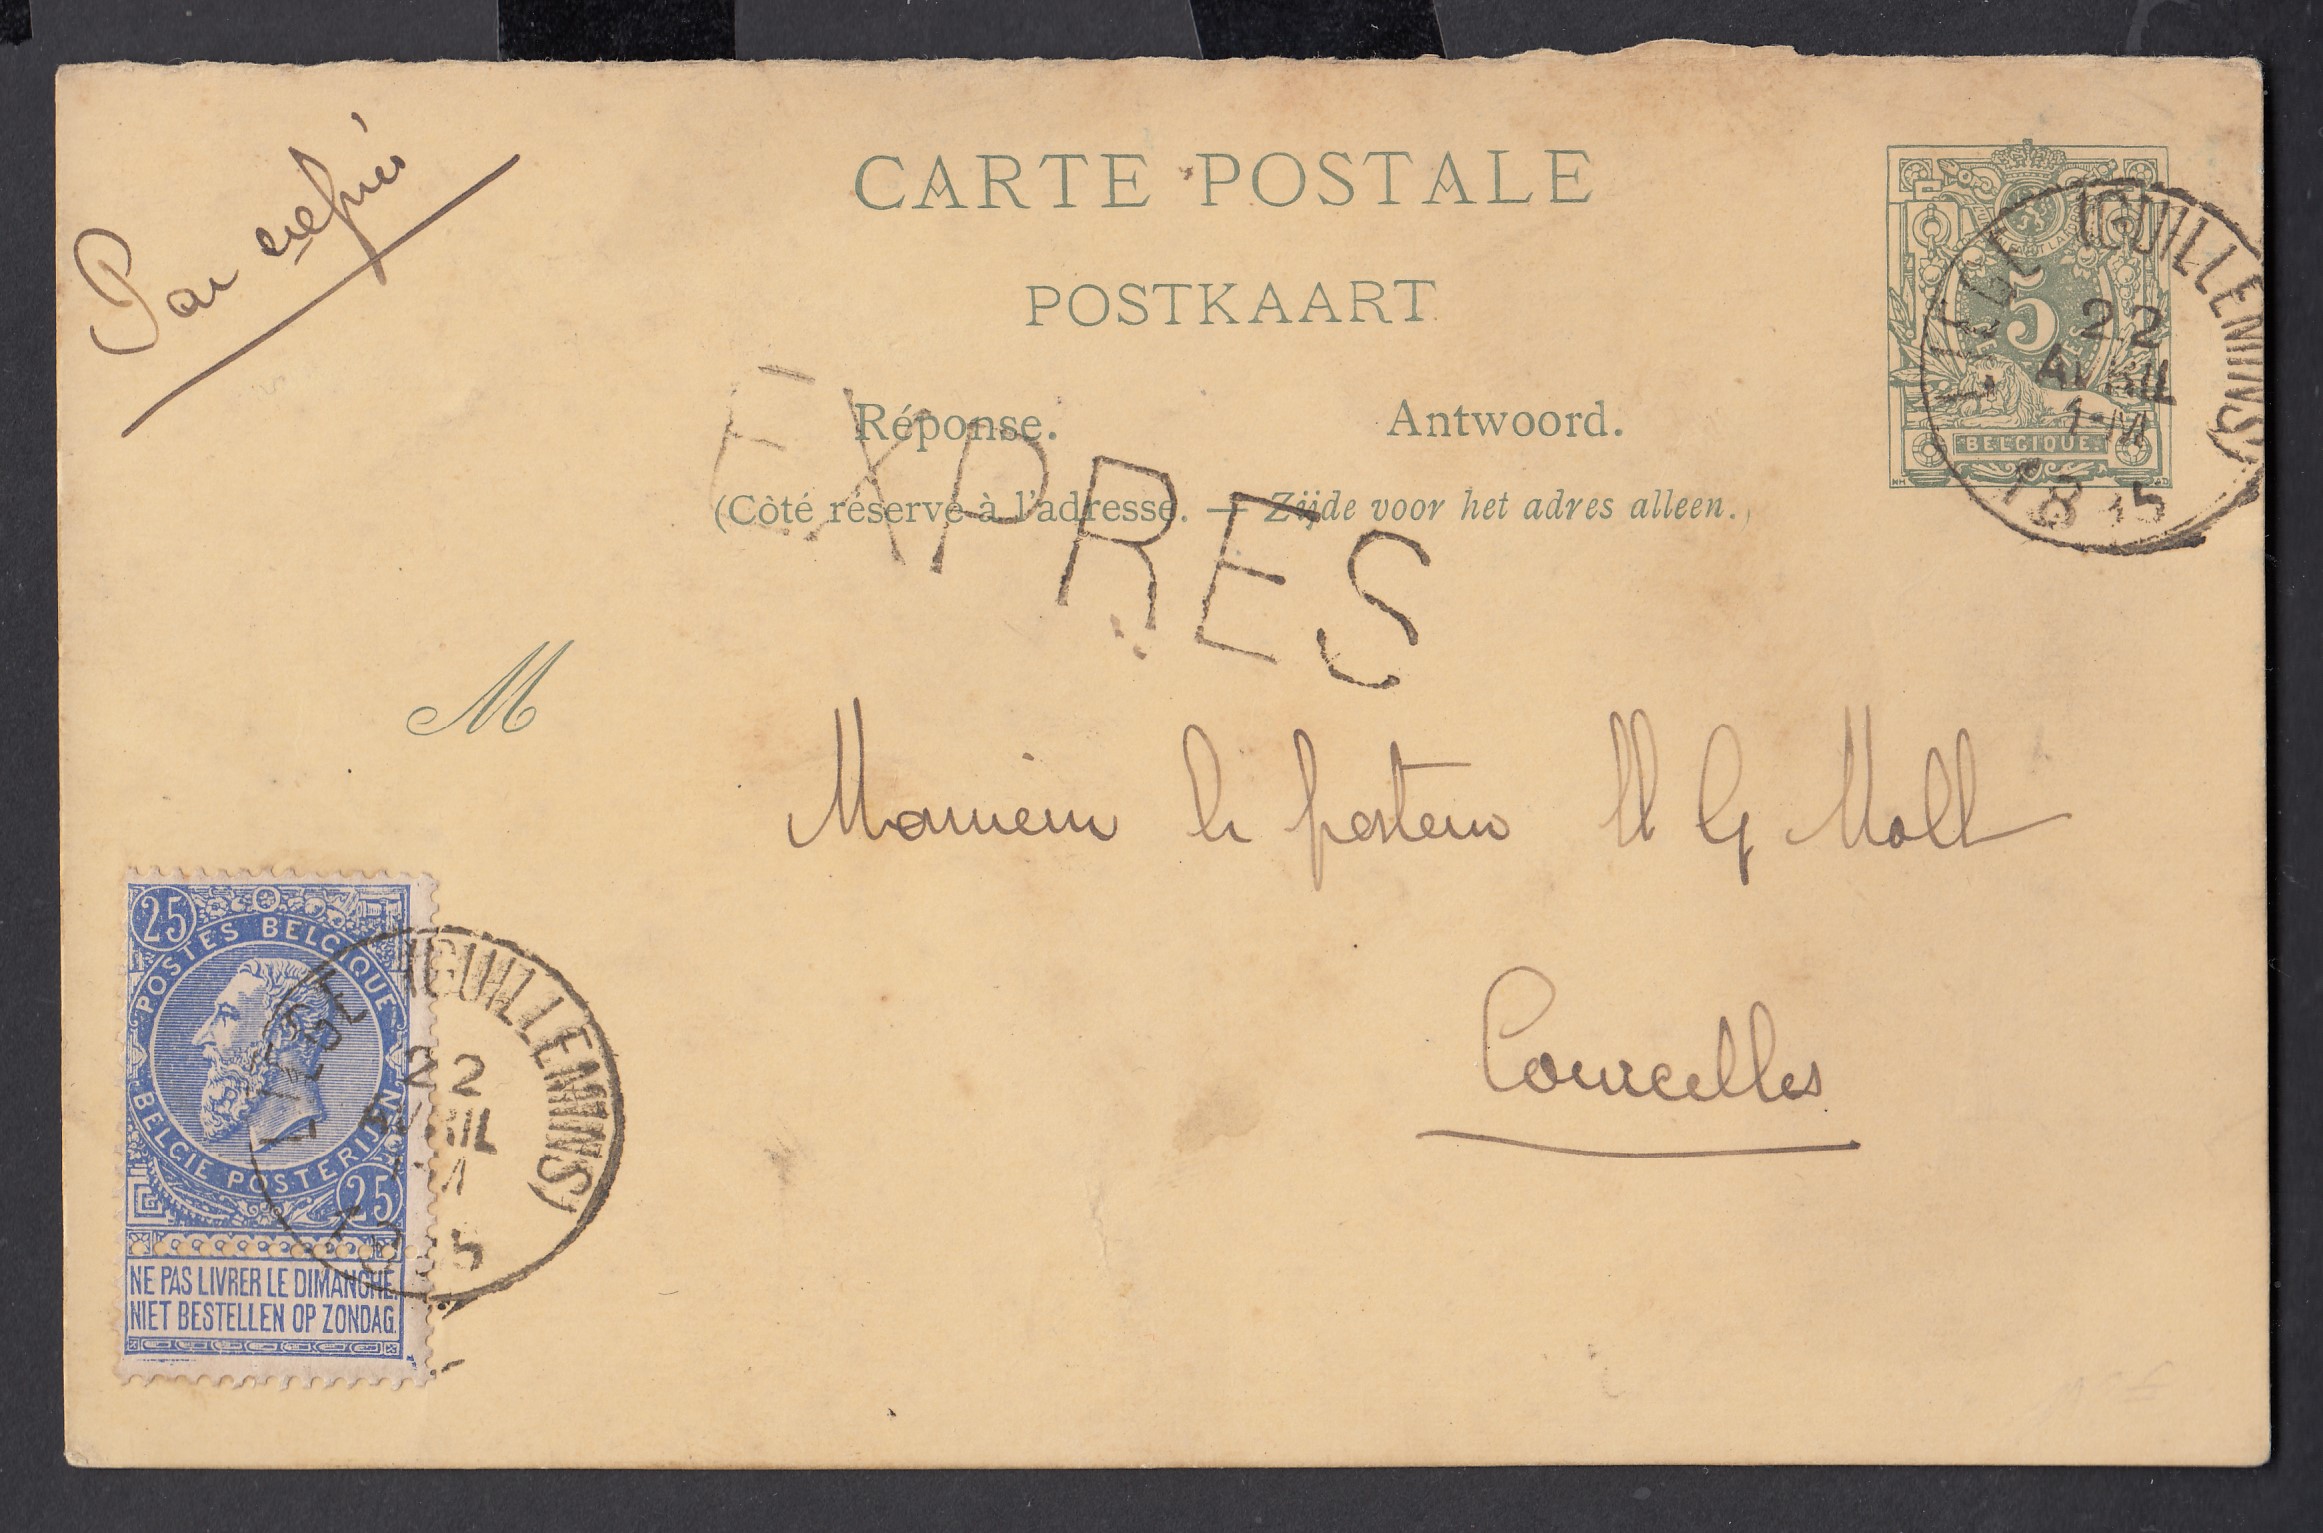 Par exprès
CARTE POSTALE
POSTKAART
Réponse. Antwoord.
(Côté réservé à l'adresse. — Zijde voor het adres alleen.)
EXPRES
5
BELGIQUE.
LIEGE (GUILLEMINS)
22
AVRIL
1-M
1895
M
Monsieur le pasteur M G Moll
Courcelles
25
POSTES BELGIQUE
BELGIE POSTERIJEN
25
NE PAS LIVRER LE DIMANCHE.
NIET BESTELLEN OP ZONDAG.
LIEGE (GUILLEMINS)
22
AVRIL